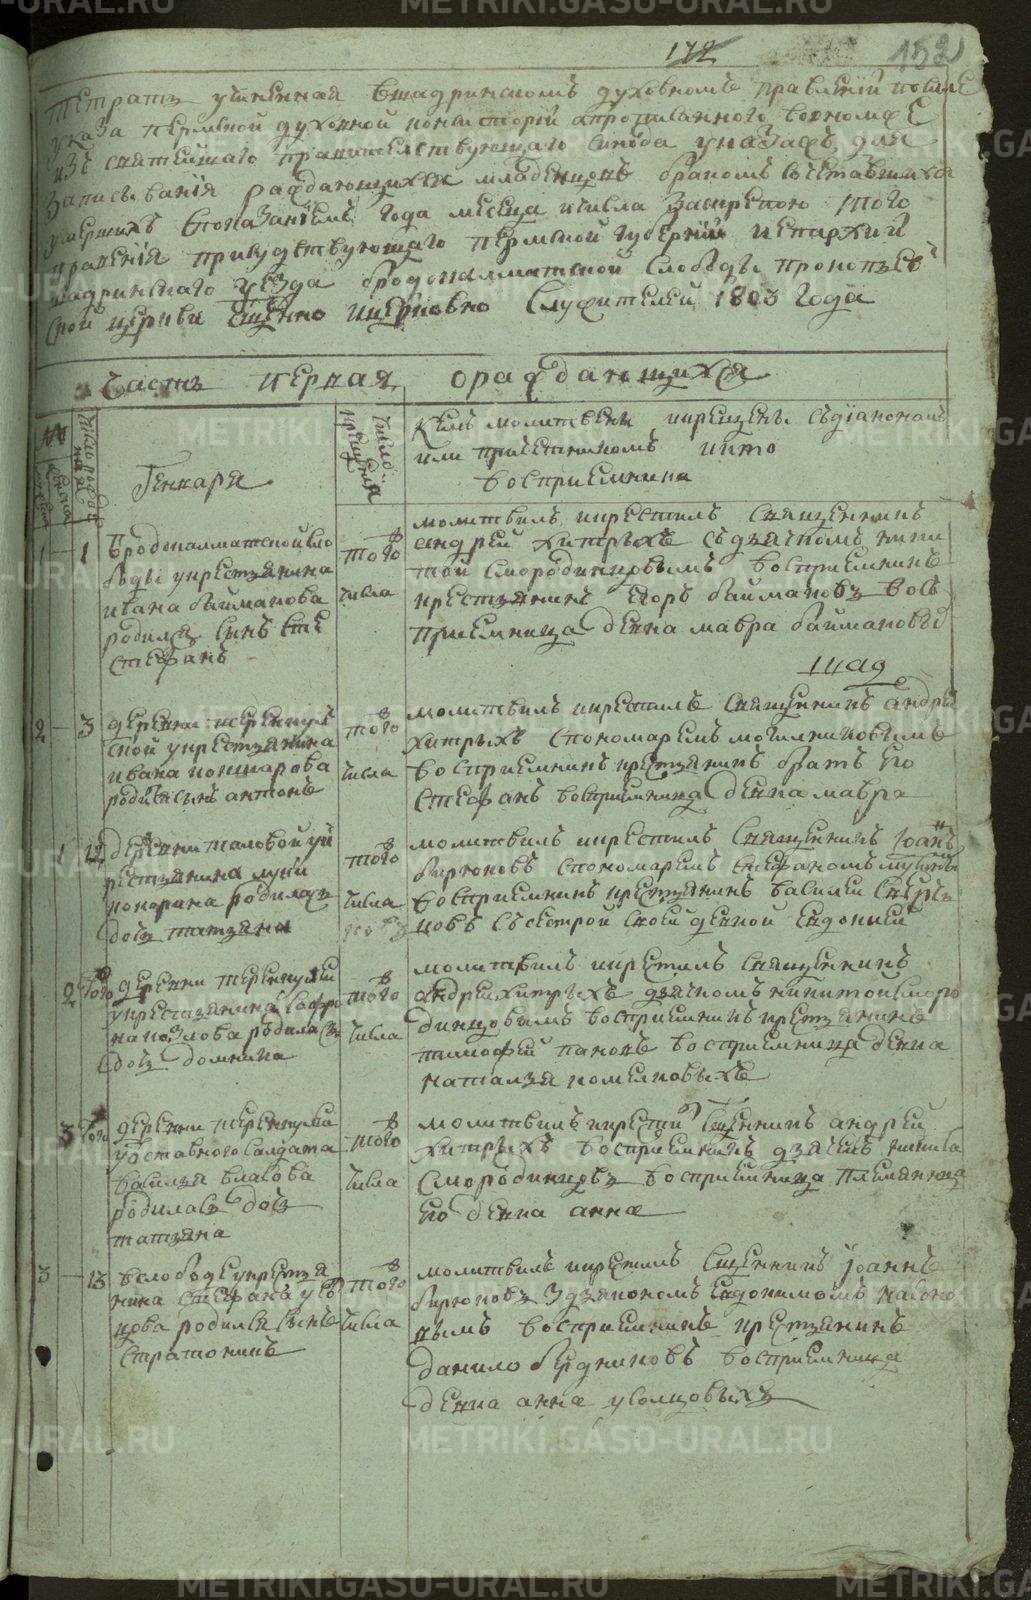 172 152
Тетрать учиненная вшадринскомъ духовномъ правлении посиле
указа пермской духовной консистории апрописанного воономже
изъ святейшаго правителствующаго синода указахъ для
записывания раждающихся младенцовъ бракомъ съчетавшихся
умершихъ спокazaниемъ года месеца ичисла закрепою того
правления присудствующаго пермской губернии иепархии
шадринского уезда бродокалматской слободы прокопьев
ской церкви священно ицерковно служителей 1803 года
Часть первая ораждающихся
число рождения
Генваря
число крещения
Кемъ молитвенъ икрещенъ съдiакономъ
или причетникомъ икто
восприемники
1 1 Бродокалматской сло
боды укрестьянина
ивана байманова
родился сынъ
стефанъ
того
числа
молитвилъ икрестилъ священникъ
андрей хитрыхъ съдьячкомъ ники
той смородинцовымъ восприемникъ
крестьянинъ егоръ баймановъ вос
приемница девка мавра баймановы
2 3 деревни черепанс
кой укрестьянина
ивана кокшарова
родился сынъ антонъ
того
числа
молитвилъ икрестилъ священникъ андрей
хитрыхъ спономаремъ могилниковымъ
восприемникъ крестьянинъ братъ его
стефанъ восприемница девка мавра
1 12 деревни таловой ук
рестьянина луки
кокорина родилась
дочь татьяна
того
числа
молитвилъ икрестилъ священникъ Iоанъ
бирюковъ спономаремъ стефаномъ
восприемникъ крестьянинъ василей
новъ съсестрой своей девкой евдокией
2 того деревни
укрестьянина
козлова родилась
дочь домника
того
числа
молитвилъ икрестилъ священникъ
андрей хитрыхъ дьячкомъ никитой сморо
динцовымъ восприемникъ крестьянинъ
тимофей пановъ восприемница девка
наталья
3 того деревни
уотставного салдата
василья власова
родилась дочь
татьяна
того
числа
молитвилъ икрестилъ священникъ андрей
хитрыхъ восприемникъ дьячекъ никита
смородинцовъ восприемница племянница
его девка анна
3 13 вслободе укрестья
нина стефана усо
цова родился сынъ
стратоникъ
того
числа
молитвилъ икрестилъ священникъ Iоаннъ
бирюковъ здьякономъ евдокимомъ
вымъ восприемникъ крестьянинъ
данило бердниковъ восприемница
девка анна усолцовыхъ
METRIKI.GASO-URAL.RU